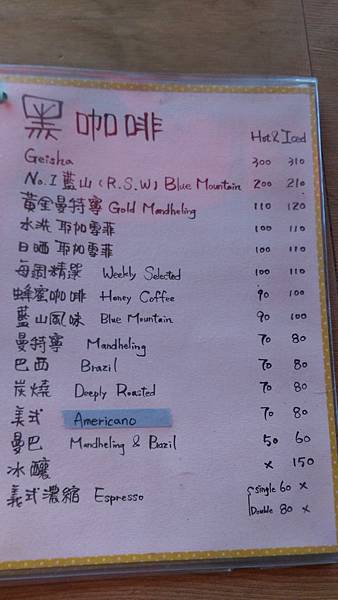 黑咖啡 Hot & Iced
Geisha 300 310
No.1 藍山(R.S.W) Blue Mountain 200 210
黃金曼特寧 Gold Mandheling 110 120
水洗耶加雪菲 100 110
日晒耶加雪菲 100 110
每週精選 Weekly Selected 100 110
蜂蜜咖啡 Honey Coffee 90 100
藍山風味 Blue Mountain 90 100
曼特寧 Mandheling 70 80
巴西 Brazil 70 80
炭燒 Deeply Roasted 70 80
美式 Americano 70 80
曼巴 Mandheling & Bazil 50 60
冰釀 x 150
義式濃縮 Espresso Single 60 x
Double 80 x